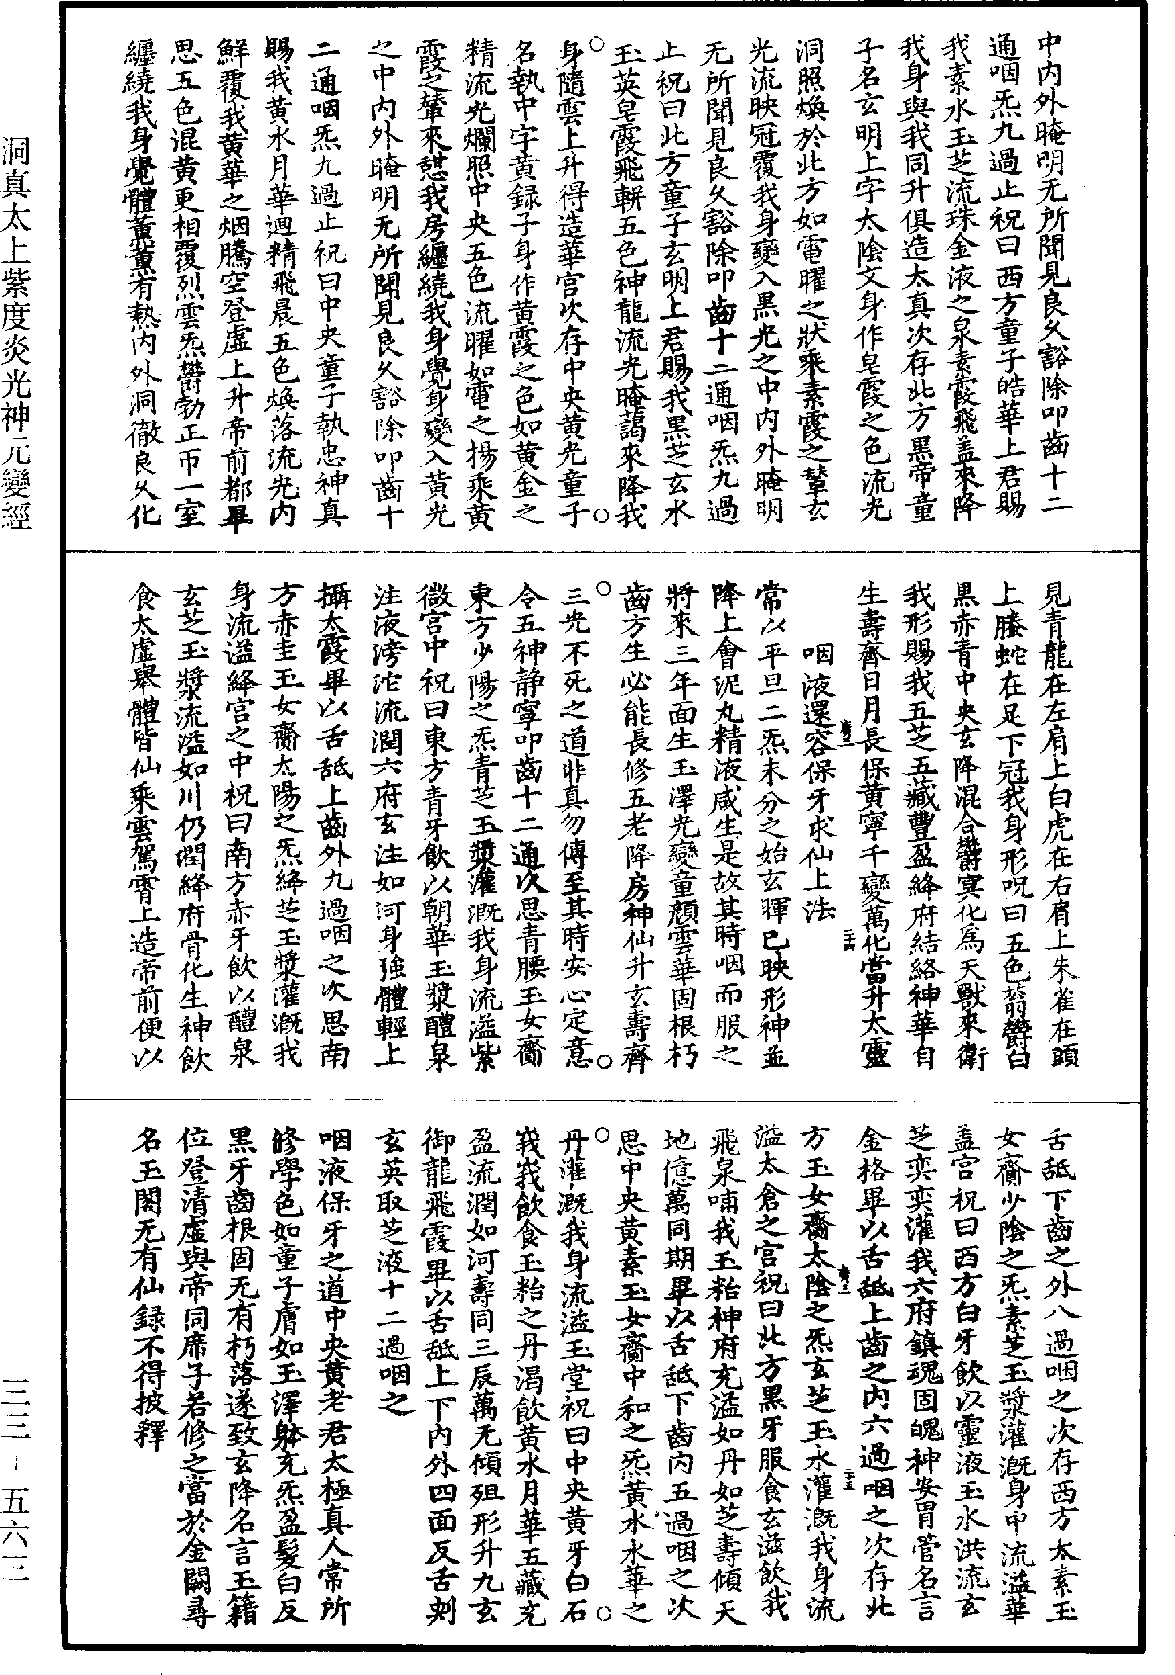 中内外晻明无所聞見良久豁除叩齒十二
通咽炁九過止祝曰西方童子皓華上君賜
我素水玉芝流珠金液之泉素霞飛蓋來降
我身與我同升俱造太真次存北方黑帝童
子名玄明上字太陰文身作皂霞之色流光
洞照煥於北方如電曜之狀乘素霞之輦玄
光流映冠覆我身變入黑光之中内外晻明
无所聞見良久豁除叩齒十二通咽炁九過
止祝曰北方童子玄明上君賜我黑芝玄水
玉英皂霞飛軿五色神龍流光晻藹來降我
身隨雲上升得造華宫次存中央黄光童子
名執中字黄録子身作黄霞之色如黄金之
精流光爛照中央五色流曜如電之揚乘黄
霞之輦來憇我房纏繞我身覺身變入黄光
之中内外晻明无所聞見良久豁除叩齒十
二通咽炁九過止祝曰中央童子執忠神真
賜我黄水月華迴精飛晨五色煥落流光内
鮮覆我黄華之烟騰空登虚上升帝前都畢
思五色混黄更相覆烈雲炁欝勃正帀一室
纏繞我身覺體薰薰有熱内外洞徹良久化
見青龍在左肩上白虎在右肩上朱雀在頭
上螣蛇在足下冠我身形呪曰五色蓊欝白
黑赤青中央玄降混合欝冥化爲天獸來衛
我形賜我五芝五藏豐盈絳府結絡神華自
生壽齊日月長保黄寧千變萬化當升太靈
咽液還容保牙求仙上法
常以平旦二炁未分之始玄暉已映形神並
降上會泥丸精液咸生是故其時咽而服之
將來三年面生玉澤光變童顏雲華固根朽
齒方生必能長修五老降房神仙升玄壽齊
三光不死之道非真勿傳至其時安心定意
令五神静寧叩齒十二通次思青腰玉女齎
東方少陽之炁青芝玉漿灌溉我身流溢紫
微宫中祝曰東方青牙飲以朝華玉漿醴泉
注液滂沱流潤六府玄注如河身強體輕上
攝太霞畢以舌舐上齒外九過咽之次思南
方赤圭玉女齎太陽之炁絳芝玉漿灌溉我
身流溢絳宫之中祝曰南方赤牙飲以醴泉
玄芝玉漿流溢如川仍潤絳府骨化生神飲
食太虚舉體皆仙乘雲駕霄上造帝前便以
舌舐下齒之外八過咽之次存西方太素玉
女齎少陰之炁素芝玉漿灌溉身中流溢華
蓋宫祝曰西方白牙飲以靈液玉水洪流玄
芝奕奕灌我六府鎮魂固魄神安胃管名言
金格畢以舌舐上齒之内六過咽之次存北
方玉女齎太陰之炁玄芝玉水灌溉我身流
溢太倉之宫祝曰北方黑牙服食玄滋飲我
飛泉哺我玉粭神府充溢如丹如芝壽傾天
地億萬同期畢以舌舐下齒内五過咽之次
思中央黄素玉女齎中和之炁黄水水華之
丹灌溉我身流溢玉堂祝曰中央黄牙白石
峩峩飲食玉粭之丹渴飲黄水月華五藏充
盈流潤如河壽同三辰萬无傾殂形升九玄
御龍飛霞畢以舌舐上下内外四面反舌刾
玄英取芝液十二過咽之
咽液保牙之道中央黄老君太極真人常所
修學色如童子膚如玉澤躰充炁盈髮白反
黑牙齒根固无有朽落遂致玄降名言玉籍
位登清虚與帝同席子若修之當於金闕尋
名玉閣无有仙録不得披釋
洞真太上紫度炎光神元變經
三三-五六一